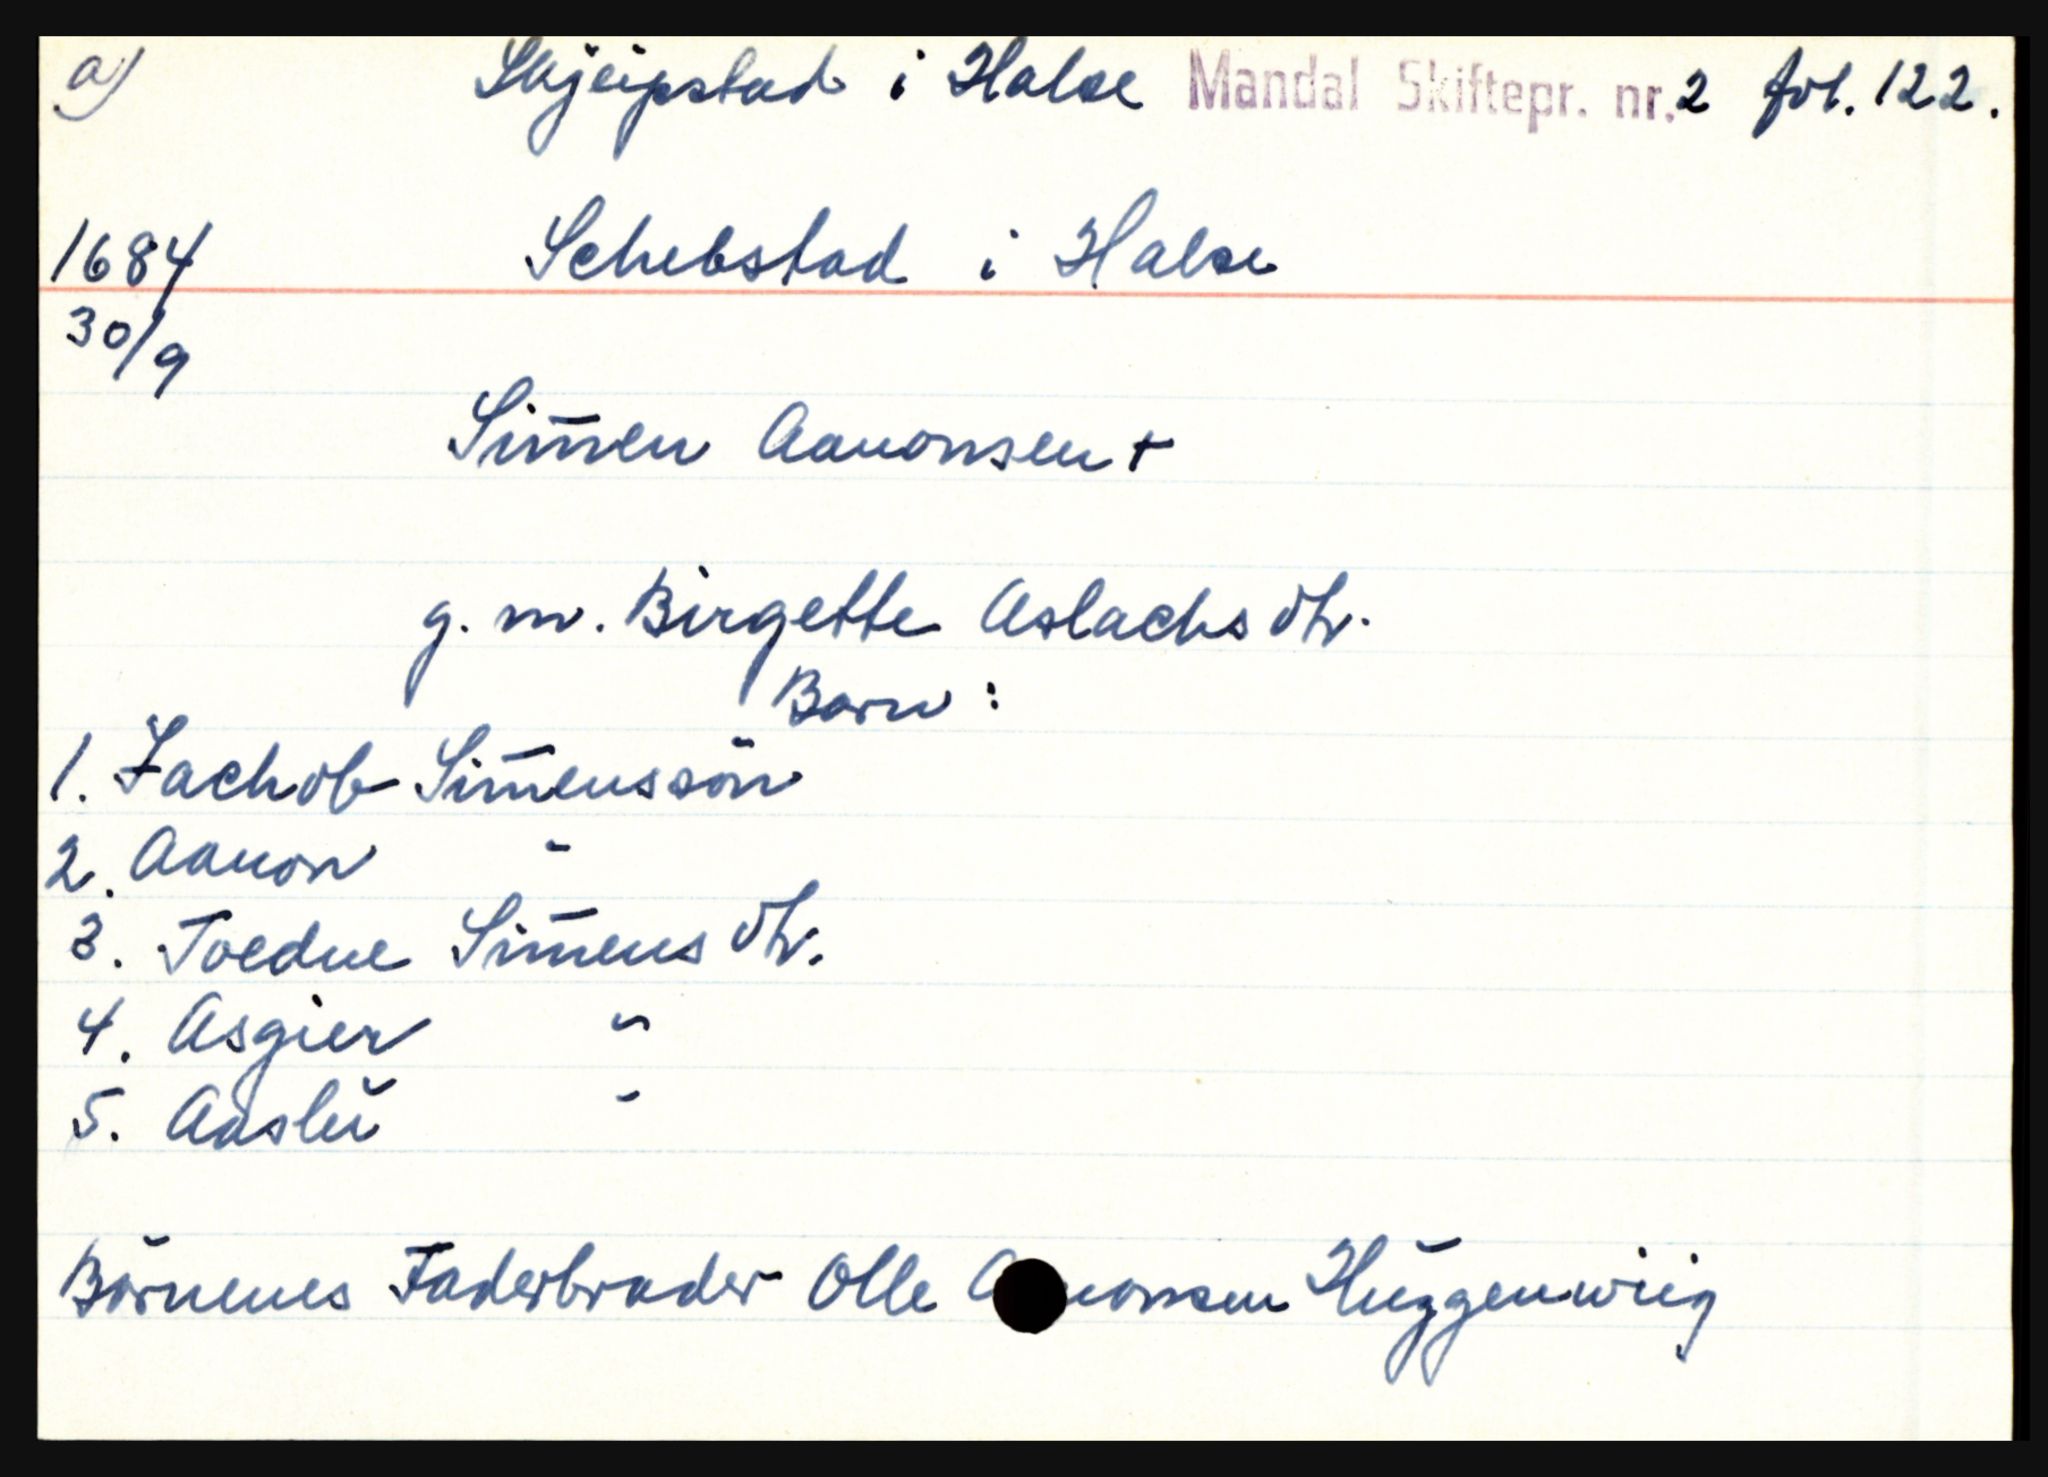 a)
Skjeipstad i Halse Mandal Skiftepr. nr. 2 fol. 122.
1684 Schebstad i Halse
30/9
Sim̅en Aanonsen +
g. m. Birgette Aslachs dtr.
Barn:
1. Jachob Sim̅enssön
2. Aanon "
3. Toedne Sim̅ens dtr.
4. Asgier "
5. Aaslŭ "
Börnenes Faderbroder Olle onsen Hŭggenwiig